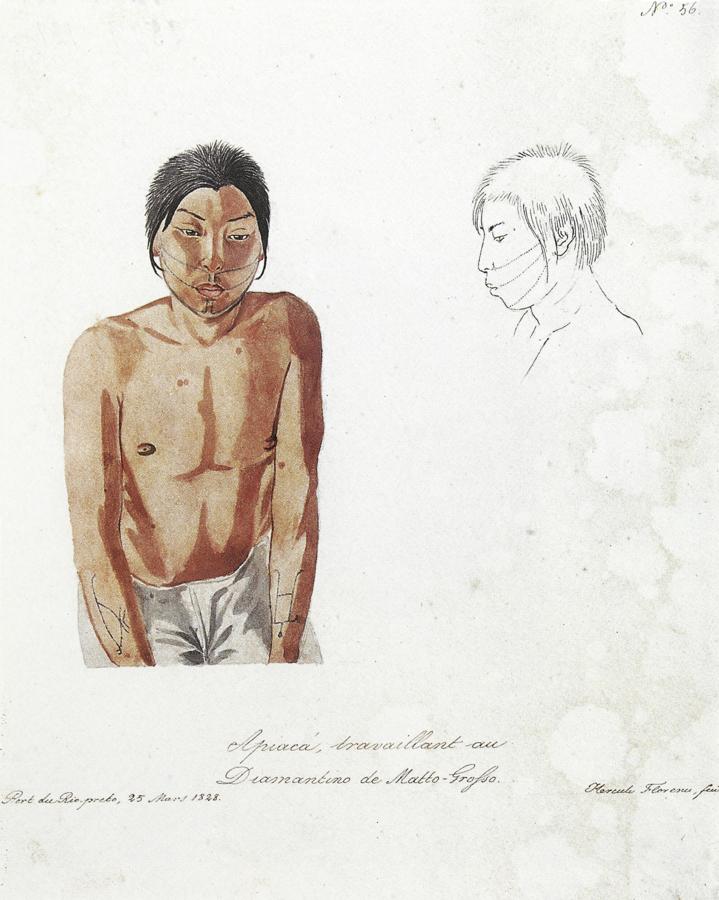 Nº 56.
Apiacá, travaillant au
Diamantino de Matto-Grosso.
Port du Rio-preto, 25 Mars 1828.
Hercule Florence,